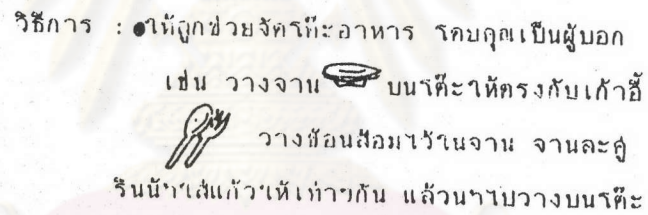 วิธีการ : ●ให้ลูกช่วยจัดโต๊ะอาหาร โดยคุณเป็นผู้บอก
เช่น วางจาน บนโต๊ะให้ตรงกับเก้าอี้
วางช้อนส้อมไว้ในจาน จานละคู่
รินน้ำใส่แก้วให้เท่าๆกัน แล้วนำไปวางบนโต๊ะ